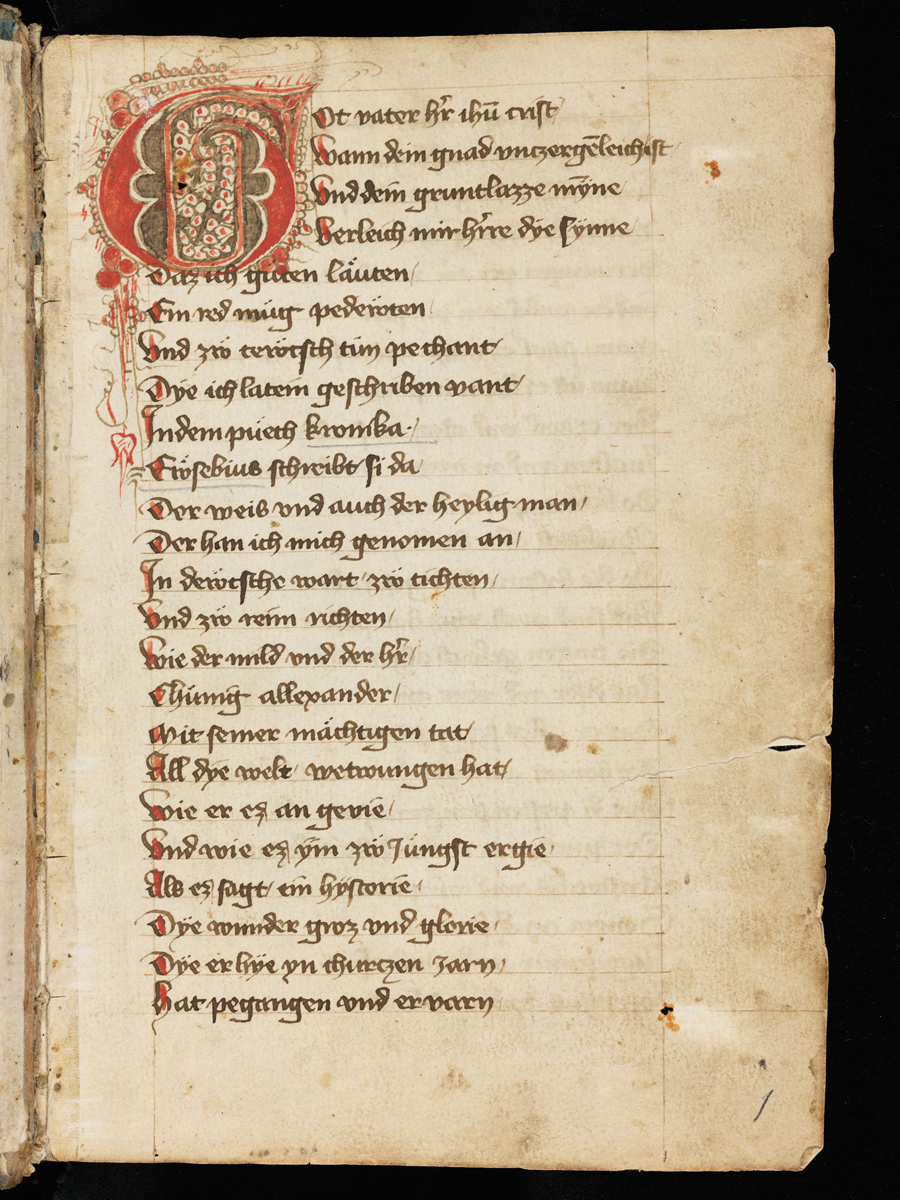 Got vater hr̄ ihū crist
Wann dein gnad vnczergēleich ist
Vnd dein gruntlazze mȳne
Verleich mir hr̄re dÿe sÿnne
Daz ich guten läuten
Ein red müg pedewten
Vnd zw tewtsch tun pechant
Dÿe ich latein geschriben vant
In dem půech kronika
Ewsebius schreibt si da
Der weis vnd auch der heylig man
Der han ich mich genomen an
In dewtsche wart zw tichten
Vnd zw reim richten
Wie der mild vnd der hr̄
Chünig allexander
Mit seiner mächtigen tat
All dÿe welt wetwungen hat
Wie er ez an gevie
Vnd wie ez ÿm zw Jüngst ergie
Als ez sagt ein hÿstorie
Dÿe wunder groz vnd glorie
Dÿe er hÿe yn churczen Jarn
Hat pegangen vnd ervarn
1